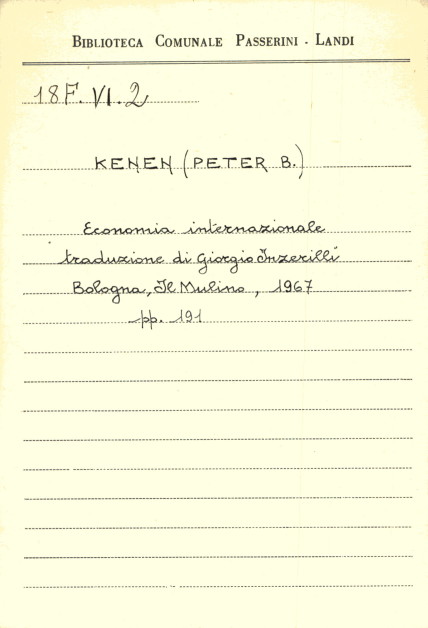 BIBLIOTECA COMUNALE PASSERINI - LANDI
18F. VI. 2
KENEN (PETER B.)
Economia internazionale
traduzione di Giorgio Inzerilli
Bologna, Il Mulino, 1967
pp. 191